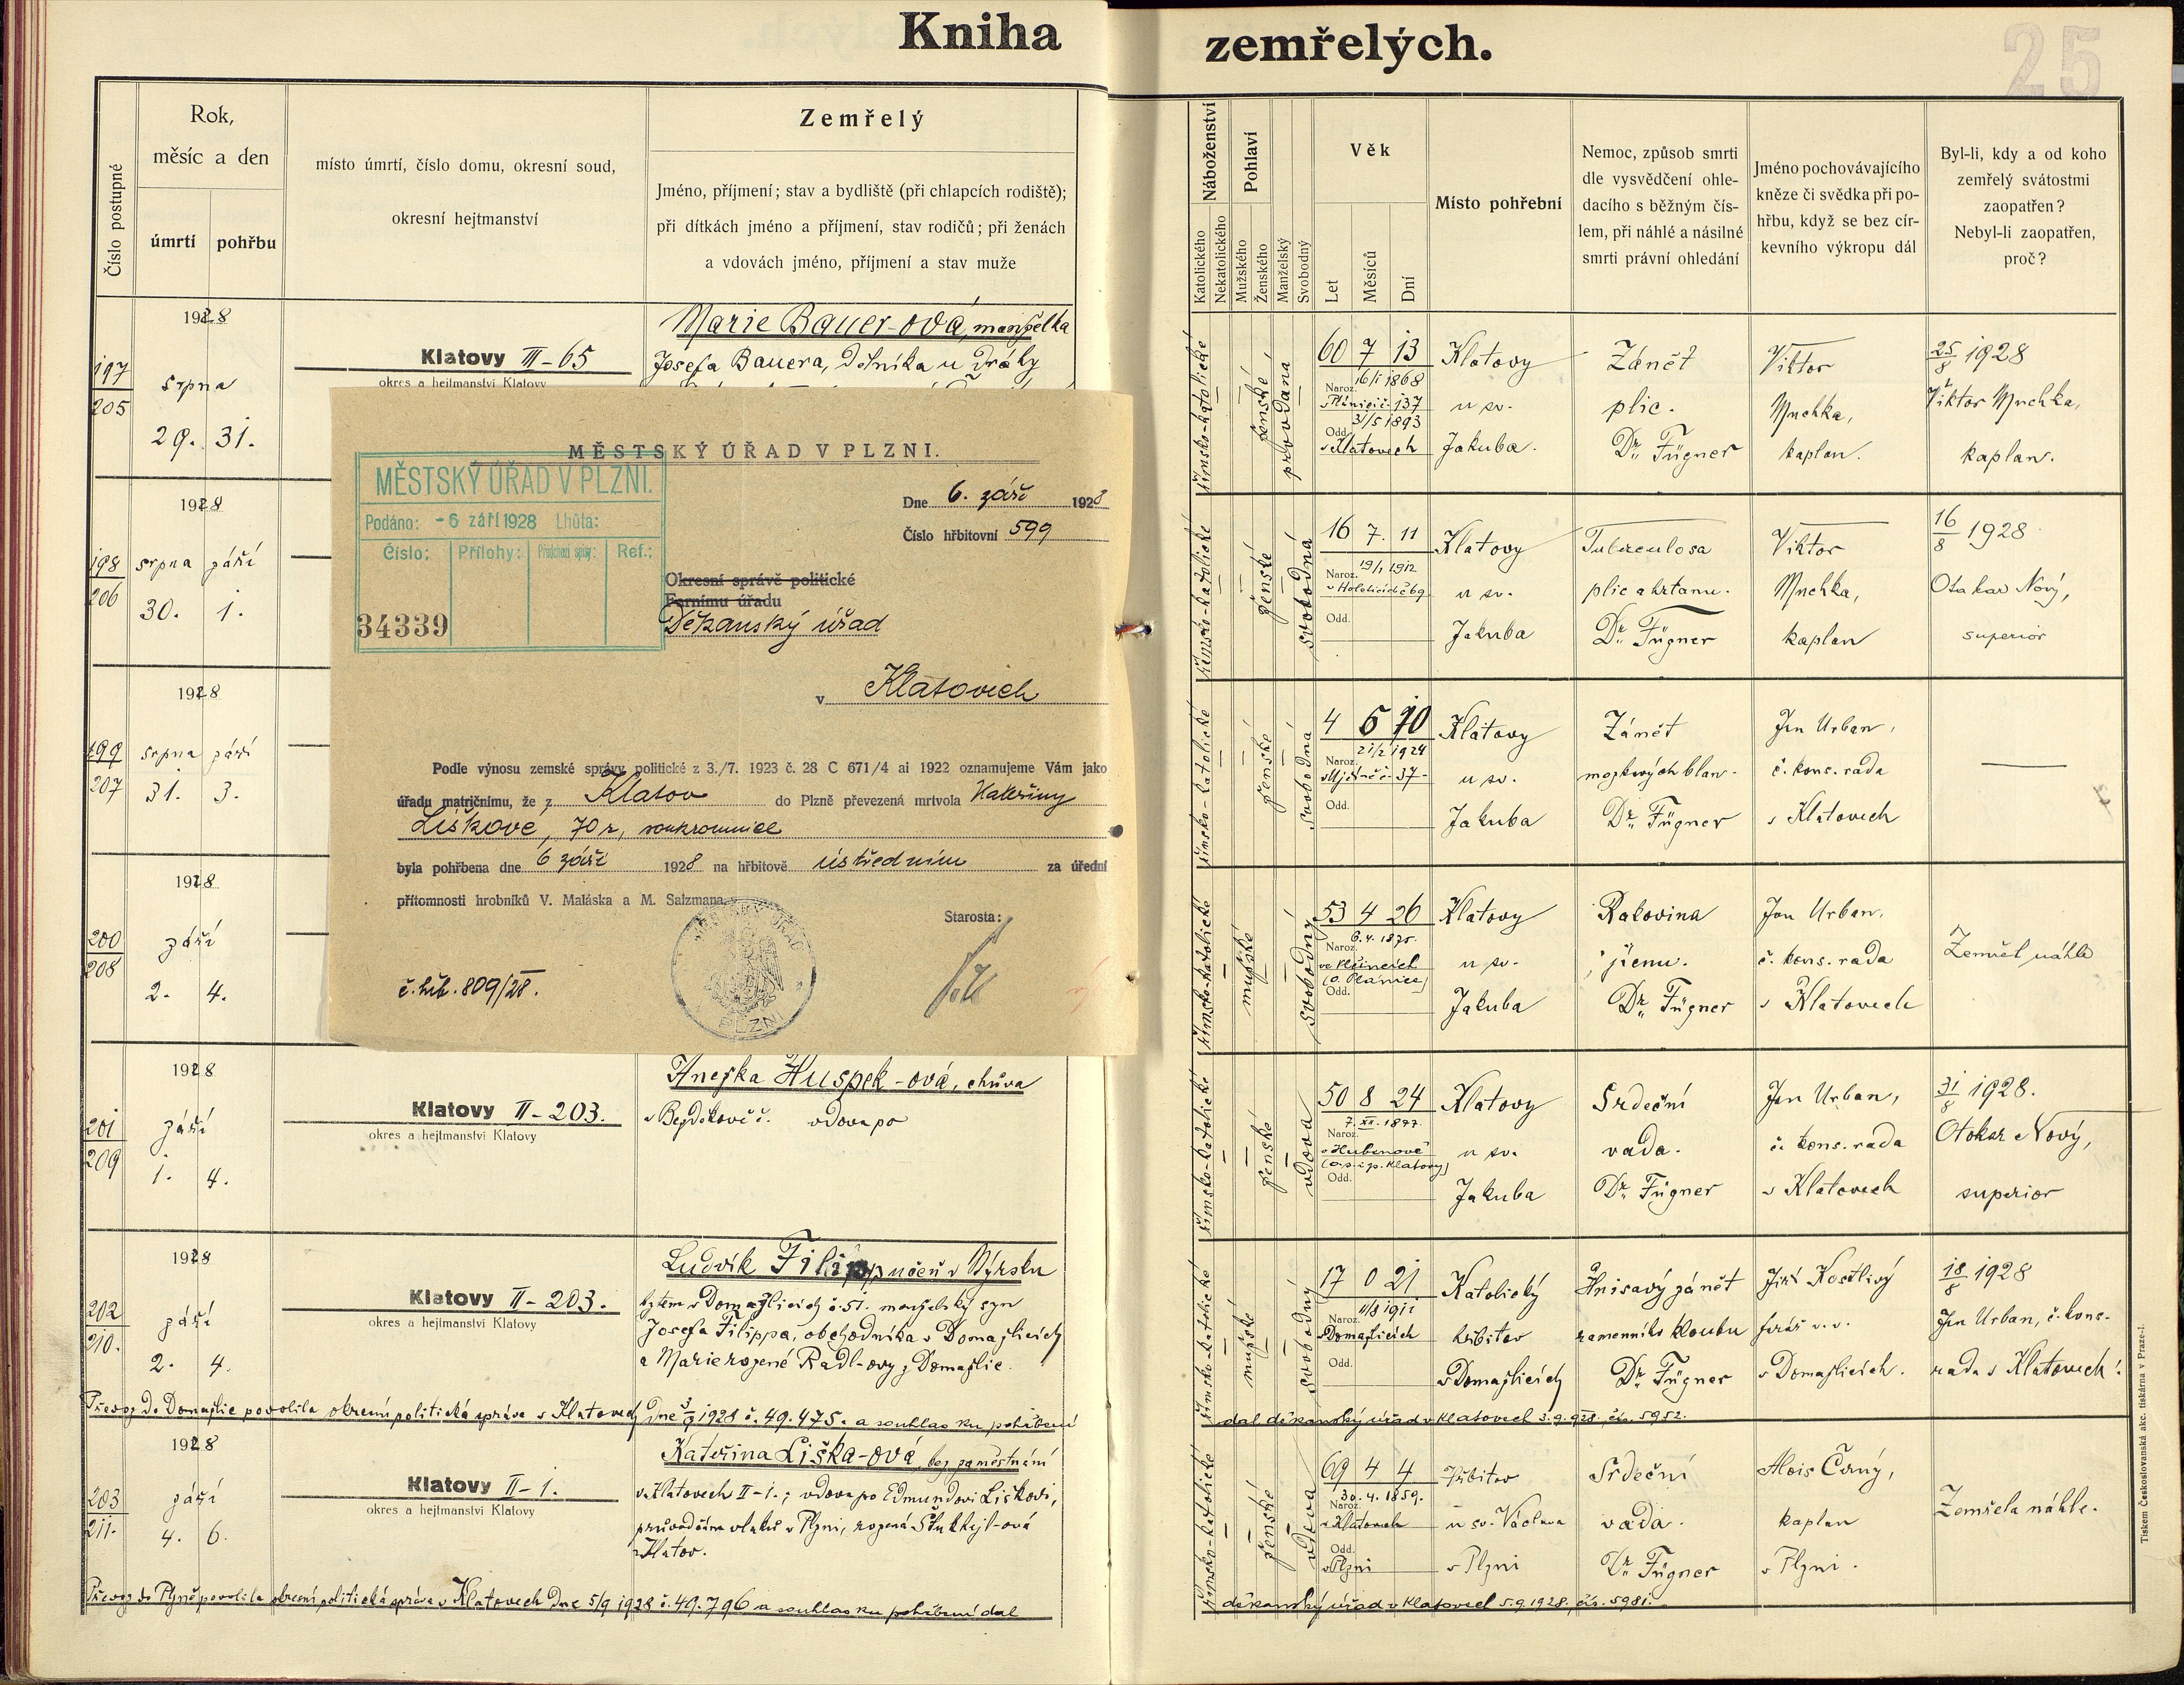 Kniha zemřelých.
25
Číslo postupné
Rok,
měsíc a den
úmrtí
pohřbu
místo úmrtí, číslo domu, okresní soud,
okresní hejtmanství
Zemřelý
Jméno, příjmení; stav a bydliště (při chlapcích rodiště);
při dítkách jméno a příjmení, stav rodičů; při ženách
a vdovách jméno, příjmení a stav muže
Náboženství
Katolického
Nekatolického
Pohlaví
Mužského
Ženského
Manželský
Svobodný
Věk
Let
Měsíců
Dní
Místo pohřební
Nemoc, způsob smrti
dle vysvědčení ohle-
dacího s běžným čís-
lem, při náhlé a násilné
smrti právní ohledání
Jméno pochovávajícího
kněze či svědka při po-
hřbu, když se bez cír-
kevního výkropu dál
Byl-li, kdy a od koho
zemřelý svátostmi
zaopatřen?
Nebyl-li zaopatřen,
proč?
1928
197
205
srpna
29. 31.
Klatovy III-65
okres a hejtmanství Klatovy
Marie Bauer-ová, manželka
Josefa Bauera, dělníka u dráhy
římsko-katolické
ženské
provdaná
60 7 13
Naroz. 16/1 1868
v Plánici č. 137
31/5 1893
Odd.
v Klatovech
Klatovy
u sv.
Jakuba.
Zánět
plic.
Dr. Fügner
Viktor
Muchka,
kaplan.
25/8 1928
Viktor Muchka,
kaplan.
1928
198
206
srpna září
30. 1.
římsko-katolické
ženské
svobodná
16 7. 11
19/1 1912
Naroz.
Odd.
Klatovy
u sv.
Jakuba
Tuberculosa
plic a hrtanu.
Dr. Fügner
Viktor
Muchka,
kaplan
16/8 1928
Otakar Nový,
superior
1928
199
207
srpna září
31. 3.
římsko-katolické
ženské
svobodná
4 6 10
21/2 1924
Naroz.
Odd.
Klatovy
u sv.
Jakuba
Zánět
mozkových blan.
Dr. Fügner
Jan Urban,
č. kons. rada
v Klatovech
1928
200
208
září
2. 4.
římsko-katolické
mužské
svobodný
53 4 26
6.4.1875.
Naroz.
(o. Plánice)
Odd.
Klatovy
u sv.
Jakuba
Rakovina
jícnu.
Dr. Fügner
Jan Urban,
č. kons. rada
v Klatovech
Zemřel náhle
MĚSTSKÝ ÚŘAD V PLZNI.
MĚSTSKÝ ÚŘAD V PLZNI.
Podáno: - 6 září 1928 Lhůta:
Číslo: Přílohy: Předchozí spisy: Ref.:
34339
Dne 6. září 1928
Číslo hřbitovní 599
Okresní správě politické
Farnímu úřadu
Děkanský úřad
v Klatovech
Podle výnosu zemské správy politické z 3./7. 1923 č. 28 C 671/4 ai 1922 oznamujeme Vám jako
úřadu matričnímu, že z Klatov do Plzně převezená mrtvola Kateřiny
Liškové, 70 r, soukromnice
byla pohřbena dne 6 září 1928 na hřbitově ústředním za úřední
přítomnosti hrobníků V. Maláska a M. Salzmana.
Starosta:
č. hřb. 809/28.
MĚSTSKÝ ÚŘAD
PLZNI
1928
201
209
září
1. 4.
Klatovy II-203.
okres a hejtmanství Klatovy
Anežka Huspek-ová, chůva
v Bezděkově č. vdova po
římsko-katolické
ženské
vdova
50 8 24
7. XII. 1877.
Naroz.
v Hubenově
(o. p. i p. Klatovy)
Odd.
Klatovy
u sv.
Jakuba
Srdeční
vada.
Dr. Fügner
Jan Urban,
č. kons. rada
v Klatovech
31/8 1928.
Otokar Nový,
superior
1928
202
210.
září
2. 4.
Klatovy II-203.
okres a hejtmanství Klatovy
Ludvík Filipp, učeň v Nýrsku
bytem v Domažlicích č. 51. manželský syn
Josefa Filippa, obchodníka v Domažlicích
a Marie rozené Radl-ovy z Domažlic.
římsko-katolické
mužské
svobodný
17 0 21
11/8 1911
Naroz.
v Domažlicích
Odd.
Katolický
hřbitov
v Domažlicích
Hnisavý zánět
ramenního kloubu
Dr. Fügner
Jiří Kostlivý
farář v. v.
v Domažlicích.
18/8 1928
Jan Urban, č. kons.
rada v Klatovech.
Převoz do Domažlic povolila okresní politická správa v Klatovech dne 3/9 1928 č. 49.475. a souhlas ku pohřbení
dal děkanský úřad v Klatovech 3.9.928. čís. 5952.
1928
203
211.
září
4. 6.
Klatovy II-1.
okres a hejtmanství Klatovy
Kateřina Liška-ová, bez zaměstnání
v Klatovech II-1.; vdova po Edmundovi Liškovi,
průvodčím vlaků v Plzni, rozená
z Klatov.
římsko-katolické
ženské
vdova
69 4 4
30. 4. 1859.
Naroz.
v Klatovech
Odd.
v Plzni
Hřbitov
u sv. Václava
v Plzni
Srdeční
vada.
Dr. Fügner
Alois Černý,
kaplan
v Plzni.
Zemřela náhle.
Převoz do Plzně povolila okresní politická správa v Klatovech dne 5/9 1928 č. 49.796 a souhlas ku pohřbení dal
děkanský úřad v Klatovech 5.9.1928. čís. 5981.
Tiskem Českoslovanská akc. tiskárna v Praze-I.